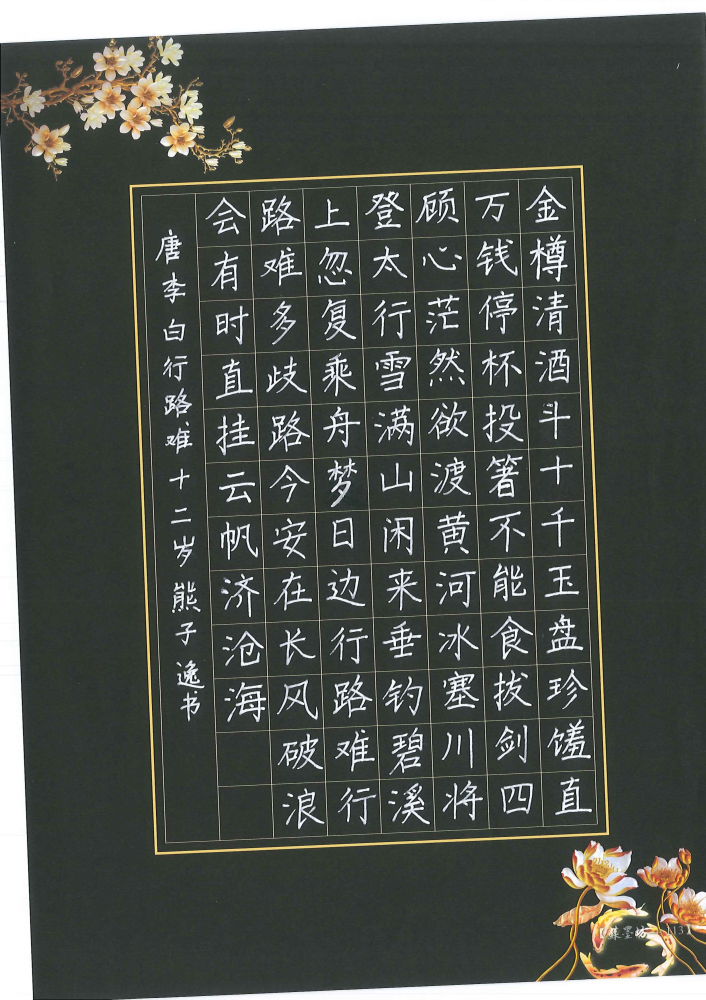 金樽清酒斗十千玉盘珍馐直
万钱停杯投箸不能食拔剑四
顾心茫然欲渡黄河冰塞川将
登太行雪满山闲来垂钓碧溪
上忽复乘舟梦日边行路难行
路难多歧路今安在长风破浪
会有时直挂云帆济沧海
唐李白行路难十二岁熊子逸书